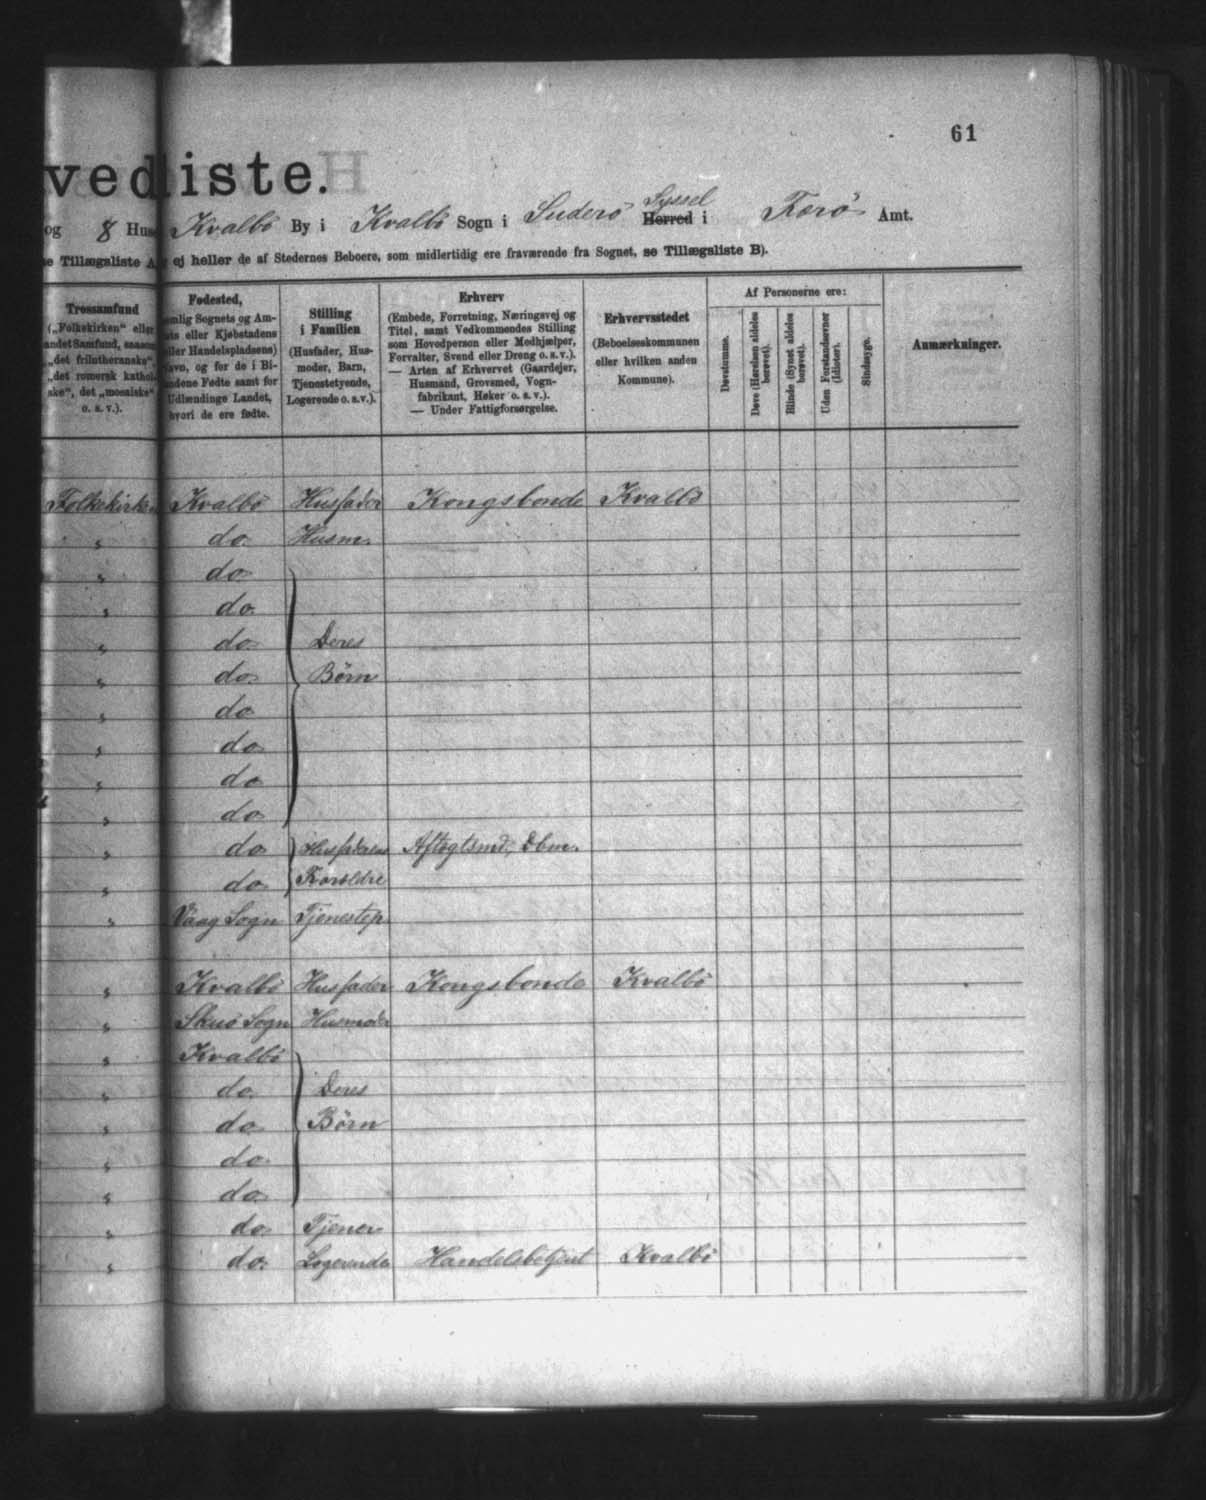 61
vedliste.
og 8 Huse Kvalbø By i Kvalbø Sogn i Suderø Syssel Herred i Færø Amt.
e Tillægsliste A, ej heller de af Stedernes Beboere, som midlertidig ere fraværende fra Sognet, se Tillægsliste B).
Trossamfund
(„Folkekirken" eller
andet Samfund, saasom
„det frilutheranske",
„det romersk katholske", det „mosaiske"
o. s. v.).
Fødested,
nemlig Sognets og Amts eller Kjøbstadens
(eller Handelspladsens)
Navn, og for de i Bilandene Fødte samt for
Udlændinge Landet,
hvori de ere fødte.
Stilling
i Familien
(Husfader, Husmoder, Barn,
Tjenestetyende,
Logerende o. s.v.).
Erhverv
(Embede, Forretning, Næringsvej og
Titel, samt Vedkommendes Stilling
som Hovedperson eller Medhjælper,
Forvalter, Svend eller Dreng o. s. v.).
— Arten af Erhvervet (Gaardejer,
Husmand, Grovsmed, Vognfabrikant, Høker o. s. v.).
— Under Fattigforsørgelse.
Erhvervsstedet
(Beboelseskommunen
eller hvilken anden
Kommune).
Af Personerne ere:
Døvstumme.
Døve (Hørelsen aldeles
berøvet).
Blinde (Synet aldeles
berøvet).
Uden Forstandsevner
(Idioter).
Sindssyge.
Anmærkninger.
Folkekirken Kvalbø Husfader Kongsbonde Kvalbø
" do. Husm.
" do.
" do.
" do. Deres
" do. Børn
" do.
" do.
" do.
" do.
" do. Husfaderens Aftægtsmd, Dbm.
" do. Forældre
" Vaag Sogn Tjenestep.
" Kvalbø Husfader Kongsbonde Kvalbø
" Skuø Sogn Husmoder
" Kvalbø
" do. Deres
" do. Børn
" do.
" do.
" do. Tjener
" do. Logerende Handelsbetjent Kvalbø